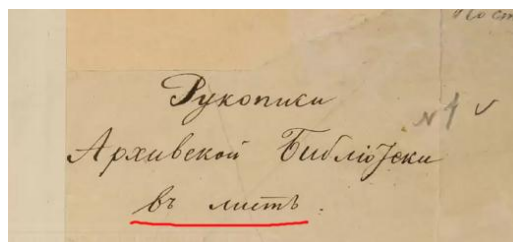 Рукописи
Архивской Библіоѳеки
N 1
въ листъ.